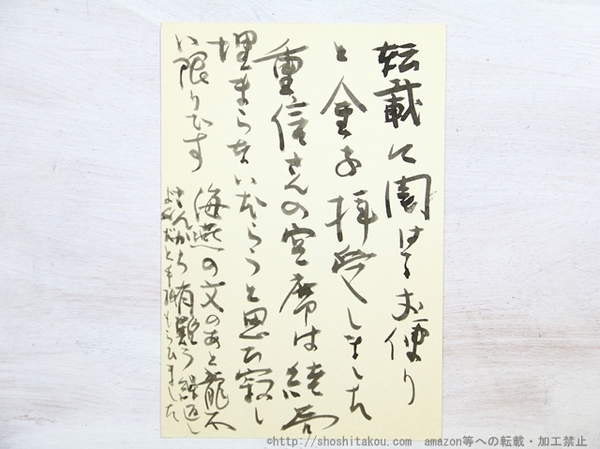 転載に関はるお便り
と金子拝受しました
重信さんの空席は結局
埋まらないだらうと思ひ寂し
い限りです
海燕の文のあと龍太
さんから有難う
手紙もらひました
©http://shoshitakou.com amazon等への転載・加工禁止